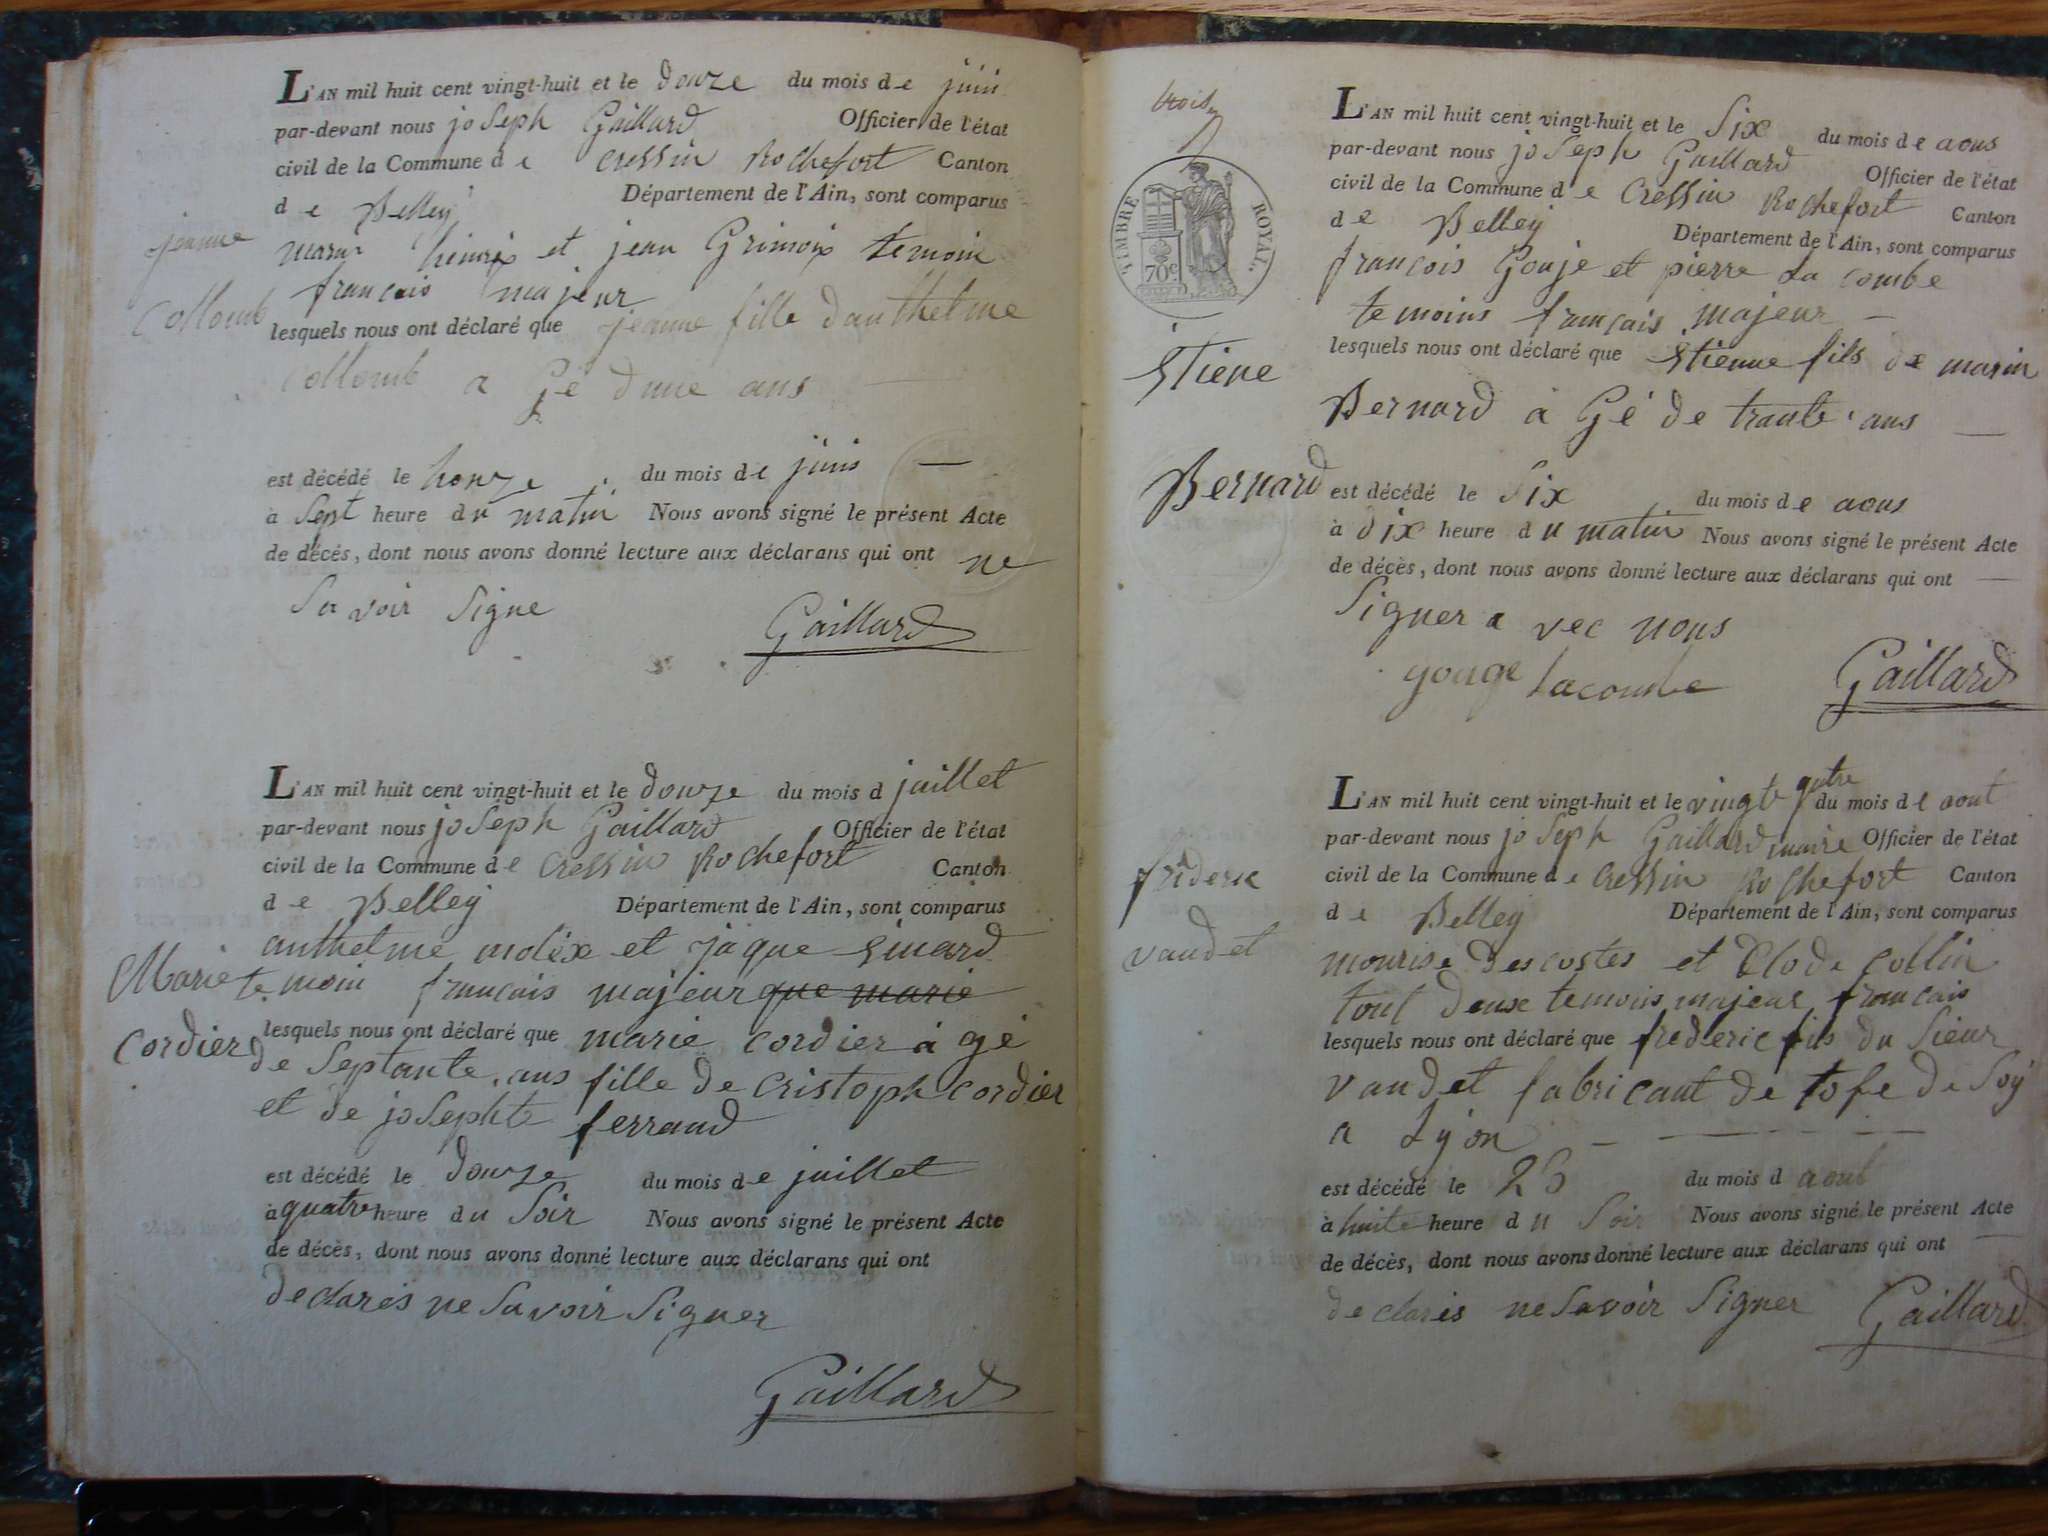 L'AN mil huit cent vingt-huit et le douze du mois de juin
par-devant nous joSeph Gaillard Officier de l'état
civil de la Commune de Cressin Rochefort Canton
de Belley Département de l'Ain, sont comparus
jeanne
et jean Grimoix temoin
français majeur
Collomb
lesquels nous ont déclaré que jeanne fille danthelme
Collomb a Gé dune ans
est décédé le honze du mois de juin
à Sept heure du matin Nous avons signé le présent Acte
de décès, dont nous avons donné lecture aux déclarans qui ont ne
Sa voir Signe
Gaillard
L'AN mil huit cent vingt-huit et le douze du mois d juillet
par-devant nous joSeph Gaillard Officier de l'état
civil de la Commune de Cressin Rochefort Canton
de Belley Département de l'Ain, sont comparus
anthelme molix et jaque Sinard
Marie
te moin français majeur que marie
Cordier
lesquels nous ont déclaré que marie cordier à gé
de Septante ans fille de Cristoph cordier
et de joSephte ferrand
est décédé le douze du mois de juillet
à quatre heure du Soir Nous avons signé le présent Acte
de décès, dont nous avons donné lecture aux déclarans qui ont
declarés ne Savoir Signer
Gaillard
trois
TIMBRE ROYAL
70c
L'AN mil huit cent vingt-huit et le Six du mois de aous
par-devant nous joSeph Gaillard Officier de l'état
civil de la Commune de Cressin Rochefort Canton
de Belley Département de l'Ain, sont comparus
françois Gouje et pierre La combe
temoins français majeur
Etiene
lesquels nous ont déclaré que Etienne fils de marin
Bernard à Gé de trante ans
Bernard
est décédé le Six du mois de aous
à dix heure du matin Nous avons signé le présent Acte
de décès, dont nous avons donné lecture aux déclarans qui ont
Signer a vec nous
gouge Lacombe Gaillard
L'AN mil huit cent vingt-huit et le vingte qutre du mois de aout
par-devant nous joSeph Gaillard maire Officier de l'état
frideric
civil de la Commune de Cressin Rochefort Canton
de Belley Département de l'Ain, sont comparus
vaudet
mourise Descostes et Clode Collin
tout deux temoins majeur francais
lesquels nous ont déclaré que frederic fils du Sieur
vaudet fabricant de tofe de Soy
a Lyon
est décédé le 23 du mois d aout
à huite heure du Soir Nous avons signé le présent Acte
de décès, dont nous avons donné lecture aux déclarans qui ont
declarés ne Savoir Signer Gaillard